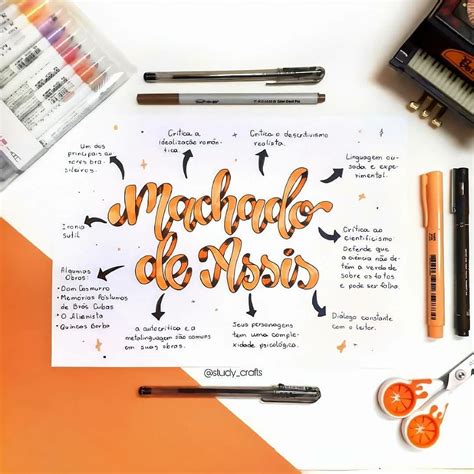 Um dos
principais au-
tores bra-
sileiros.
Crítica a
idealização român-
tica.
Crítica o descritivismo
realista.
Linguagem ou-
sada e ex-
perimental.
Machado
de Assis
Ironia
sutil
Crítica ao
cientificismo
Defende que
a ciência não de-
tém a verdade
sobre os fatos
e pode ser falha.
Algumas
Obras:
• Dom Casmurro
• Memórias Póstumas
de Brás Cubas
• O Alienista
• Quincas Borba
a autocrítica e a
metalinguagem são comuns
em suas obras.
Seus personagens
tem uma com-
plexidade psicológica.
Diálogo constante
com o leitor.
@study_crafts